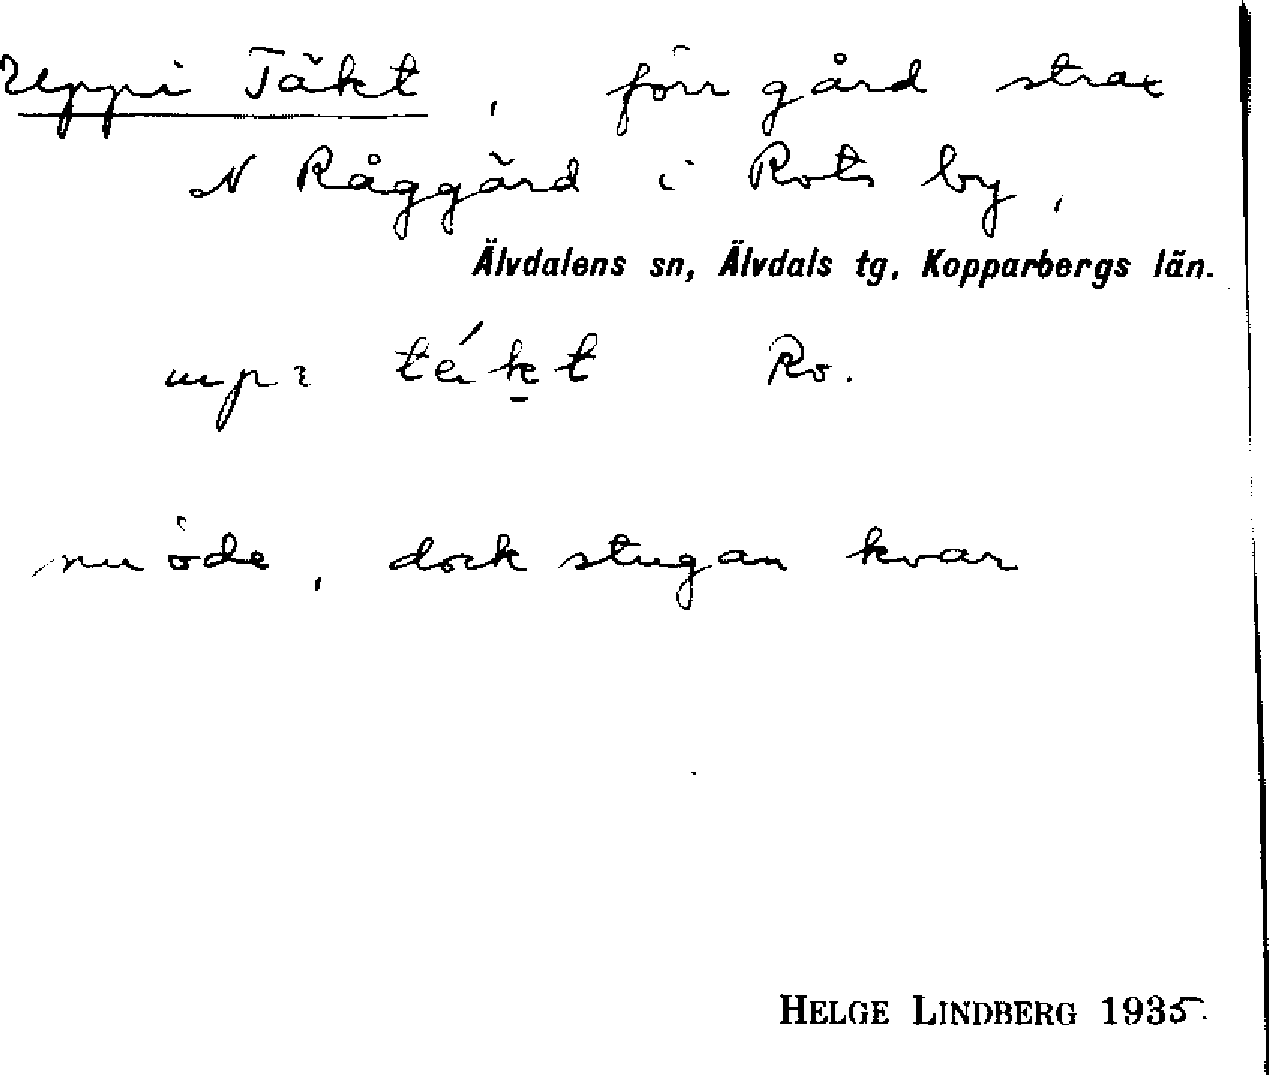 Uppi Täkt, förr gård strax
N Råggård i Rots by,
Älvdalens sn, Älvdals tg, Kopparbergs län.
upı tékt Ro.
nu öde, dock stugan kvar
HELGE LINDBERG 1935.